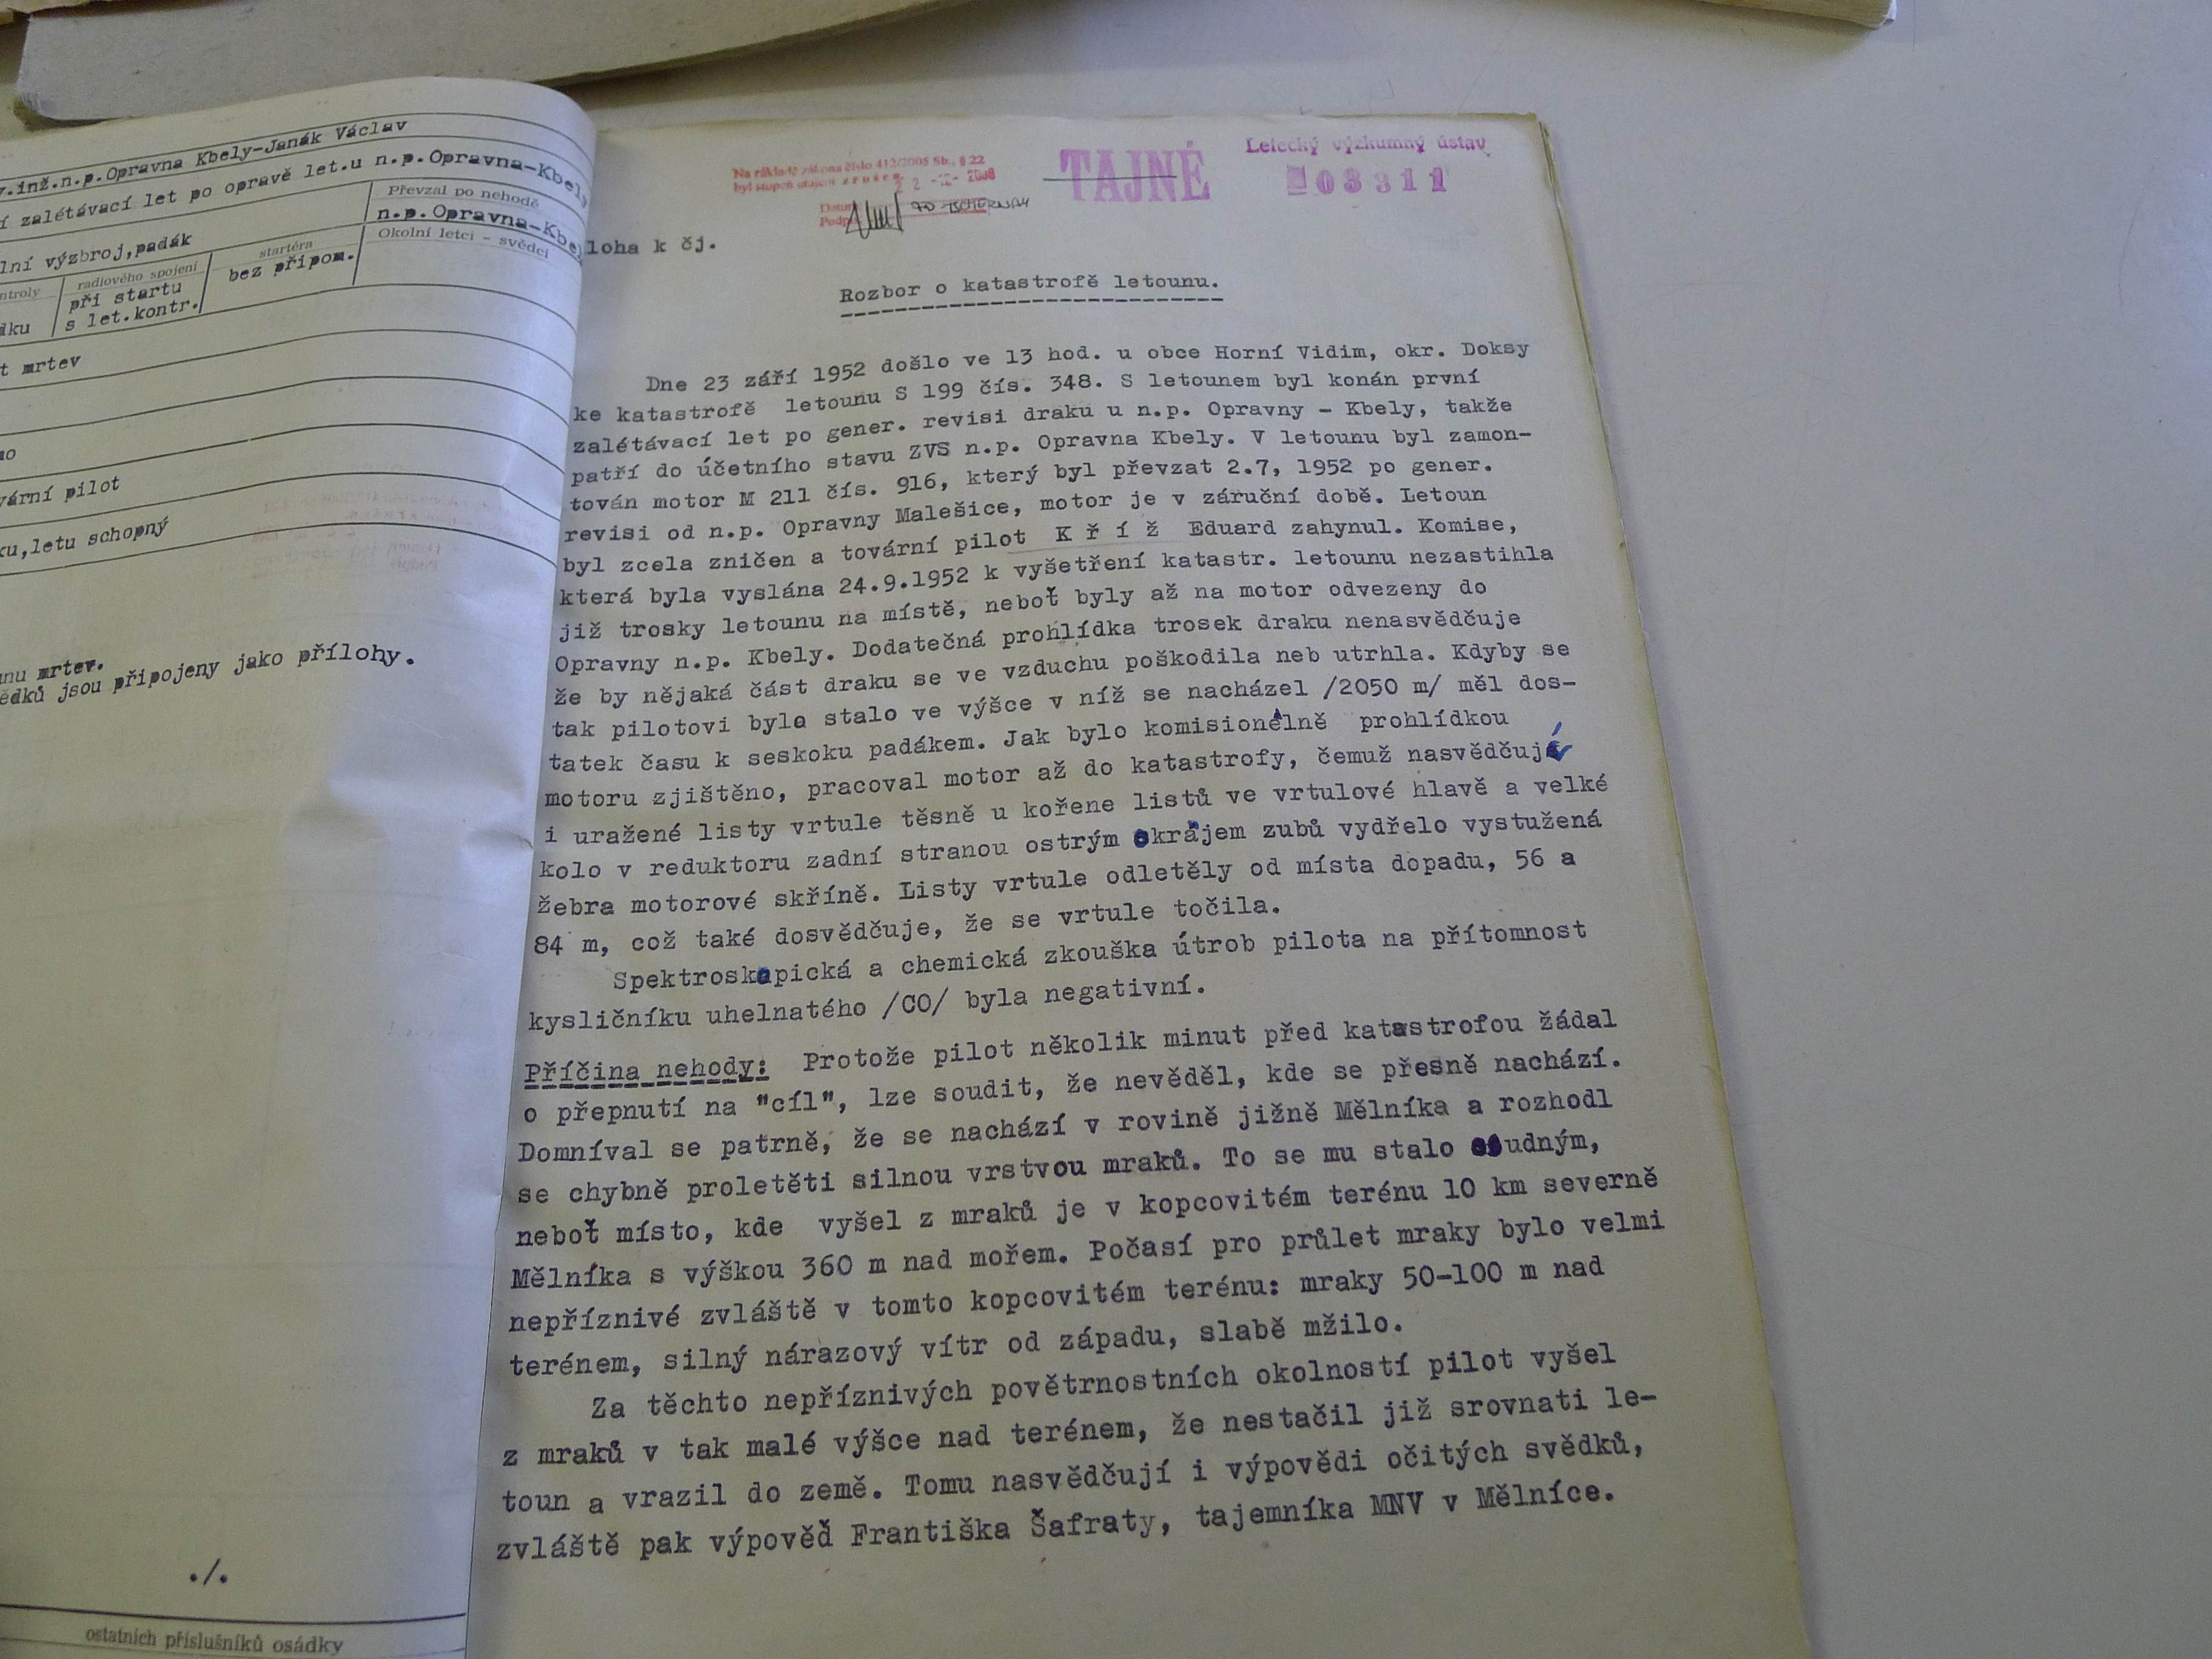 .inž.n.p.Opravna Kbely-Janák Václav
zalétávací let po opravě let.u n.p.Opravna-Kbely
Převzal po nehodě
n.p.Opravna-Kbel
lní výzbroj,padák
ntroly
radiového spojení
startéra
Okolní letci - svědci
dku
při startu
s let.kontr.
bez připom.
t mrtev
vární pilot
ku,letu schopný
nu mrtev.
ědků jsou připojeny jako přílohy.
./.
ostatních příslušníků osádky
Na základě zákona číslo 412/2005 Sb., § 22
byl stupeň utajení zrušen.
22 -12- 2008
Datum
Podpis
TAJNÉ
Letecký výzkumný ústav
03311
loha k čj.
Rozbor o katastrofě letounu.
Dne 23 září 1952 došlo ve 13 hod. u obce Horní Vidim, okr. Doksy
ke katastrofě letounu S 199 čís. 348. S letounem byl konán první
zalétávací let po gener. revisi draku u n.p. Opravny - Kbely, takže
patří do účetního stavu ZVS n.p. Opravna Kbely. V letounu byl zamon-
tován motor M 211 čís. 916, který byl převzat 2.7, 1952 po gener.
revisi od n.p. Opravny Malešice, motor je v záruční době. Letoun
byl zcela zničen a tovární pilot K ř í ž Eduard zahynul. Komise,
která byla vyslána 24.9.1952 k vyšetření katastr. letounu nezastihla
již trosky letounu na místě, neboť byly až na motor odvezeny do
Opravny n.p. Kbely. Dodatečná prohlídka trosek draku nenasvědčuje
že by nějaká část draku se ve vzduchu poškodila neb utrhla. Kdyby se
tak pilotovi bylo stalo ve výšce v níž se nacházel /2050 m/ měl dos-
tatek času k seskoku padákem. Jak bylo komisionelně prohlídkou
motoru zjištěno, pracoval motor až do katastrofy, čemuž nasvědčují
i uražené listy vrtule těsně u kořene listů ve vrtulové hlavě a velké
kolo v reduktoru zadní stranou ostrým okrajem zubů vydřelo vystužená
žebra motorové skříně. Listy vrtule odletěly od místa dopadu, 56 a
84 m, což také dosvědčuje, že se vrtule točila.
Spektroskopická a chemická zkouška útrob pilota na přítomnost
kysličníku uhelnatého /CO/ byla negativní.
Příčina nehody: Protože pilot několik minut před katastrofou žádal
o přepnutí na "cíl", lze soudit, že nevěděl, kde se přesně nachází.
Domníval se patrně, že se nachází v rovině jižně Mělníka a rozhodl
se chybně proletěti silnou vrstvou mraků. To se mu stalo osudným,
neboť místo, kde vyšel z mraků je v kopcovitém terénu 10 km severně
Mělníka s výškou 360 m nad mořem. Počasí pro průlet mraky bylo velmi
nepříznivé zvláště v tomto kopcovitém terénu: mraky 50-100 m nad
terénem, silný nárazový vítr od západu, slabě mžilo.
Za těchto nepříznivých povětrnostních okolností pilot vyšel
z mraků v tak malé výšce nad terénem, že nestačil již srovnati le-
toun a vrazil do země. Tomu nasvědčují i výpovědi očitých svědků,
zvláště pak výpověď Františka Šafraty, tajemníka MNV v Mělníce.